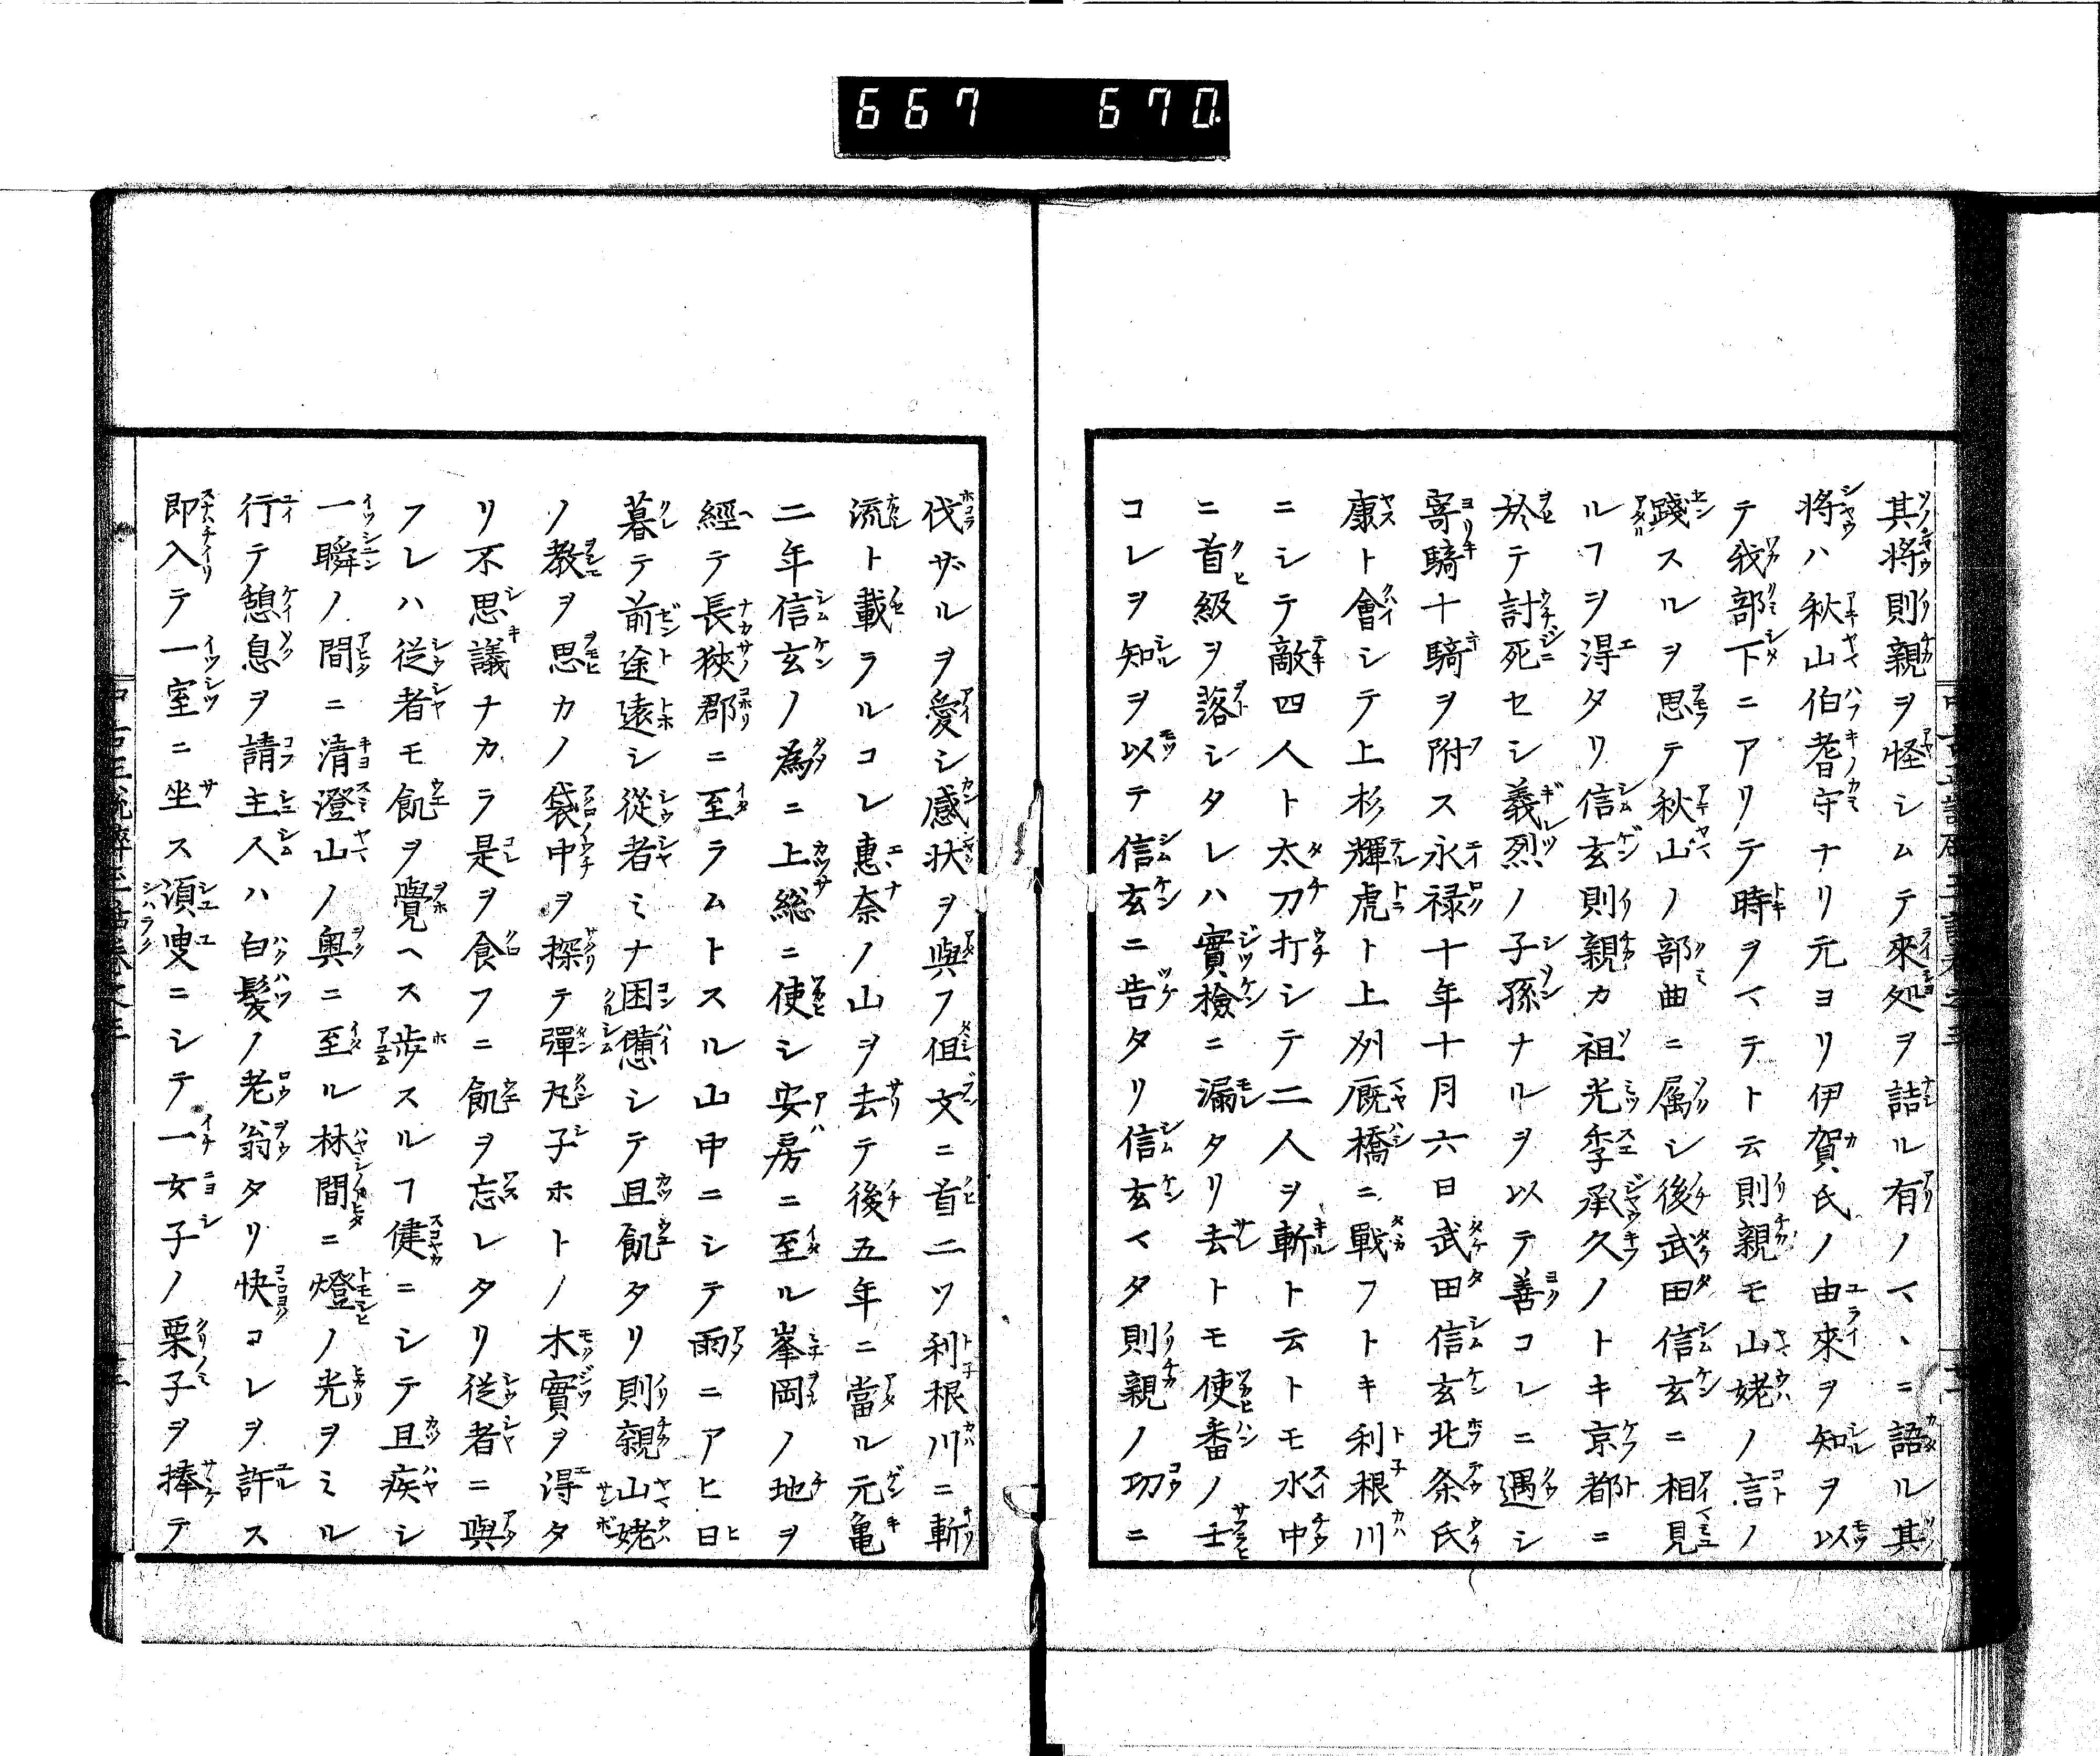 667 670.
其将則親ヲ怪シムテ來処ヲ詰ル有ノマヽニ語ル其
将ハ秋山伯耆守ナリ元ヨリ伊賀氏ノ由來ヲ知ヲ以
テ我部下ニアリテ時ヲマテト云則親モ山姥ノ言ノ
踐スルヲ思テ秋山ノ部曲ニ属シ後武田信玄ニ相見
ルヿヲ得タリ信玄則親カ祖光季承久ノトキ京都ニ
於テ討死セシ義烈ノ子孫ナルヲ以テ善コレニ遇シ
寄騎十騎ヲ附ス永禄十年十月六日武田信玄北条氏
康ト會シテ上杉輝虎ト上刕厩橋ニ戰フトキ利根川
ニシテ敵四人ト太刀打シテ二人ヲ斬ト云トモ水中
ニ首級ヲ落シタレハ實檢ニ漏タリ去トモ使番ノ士
コレヲ知ヲ以テ信玄ニ告タリ信玄マタ則親ノ功ニ
伐ザルヲ愛シ感状ヲ與フ但文ニ首二ツ利根川ニ斬
流ト載ラルコレ惠奈ノ山ヲ去テ後五年ニ當ル元亀
二年信玄ノ為ニ上総ニ使シ安房ニ至ル峯岡ノ地ヲ
經テ長狹郡ニ至ラムトスル山中ニシテ雨ニアヒ日
暮テ前途遠シ從者ミナ困憊シテ且飢タリ則親山姥
ノ教ヲ思カノ袋中ヲ探テ彈丸子ホトノ木實ヲ得タ
リ不思議ナカラ是ヲ食フニ飢ヲ忘レタリ従者ニ與
フレハ従者モ飢ヲ覺ヘス歩スルヿ健ニシテ且疾シ
一瞬ノ間ニ清澄山ノ奥ニ至ル林間ニ燈ノ光ヲミル
行テ憩息ヲ請主人ハ白髪ノ老翁タリ快コレヲ許ス
即入テ一室ニ坐ス須臾ニシテ一女子ノ栗子ヲ捧テ